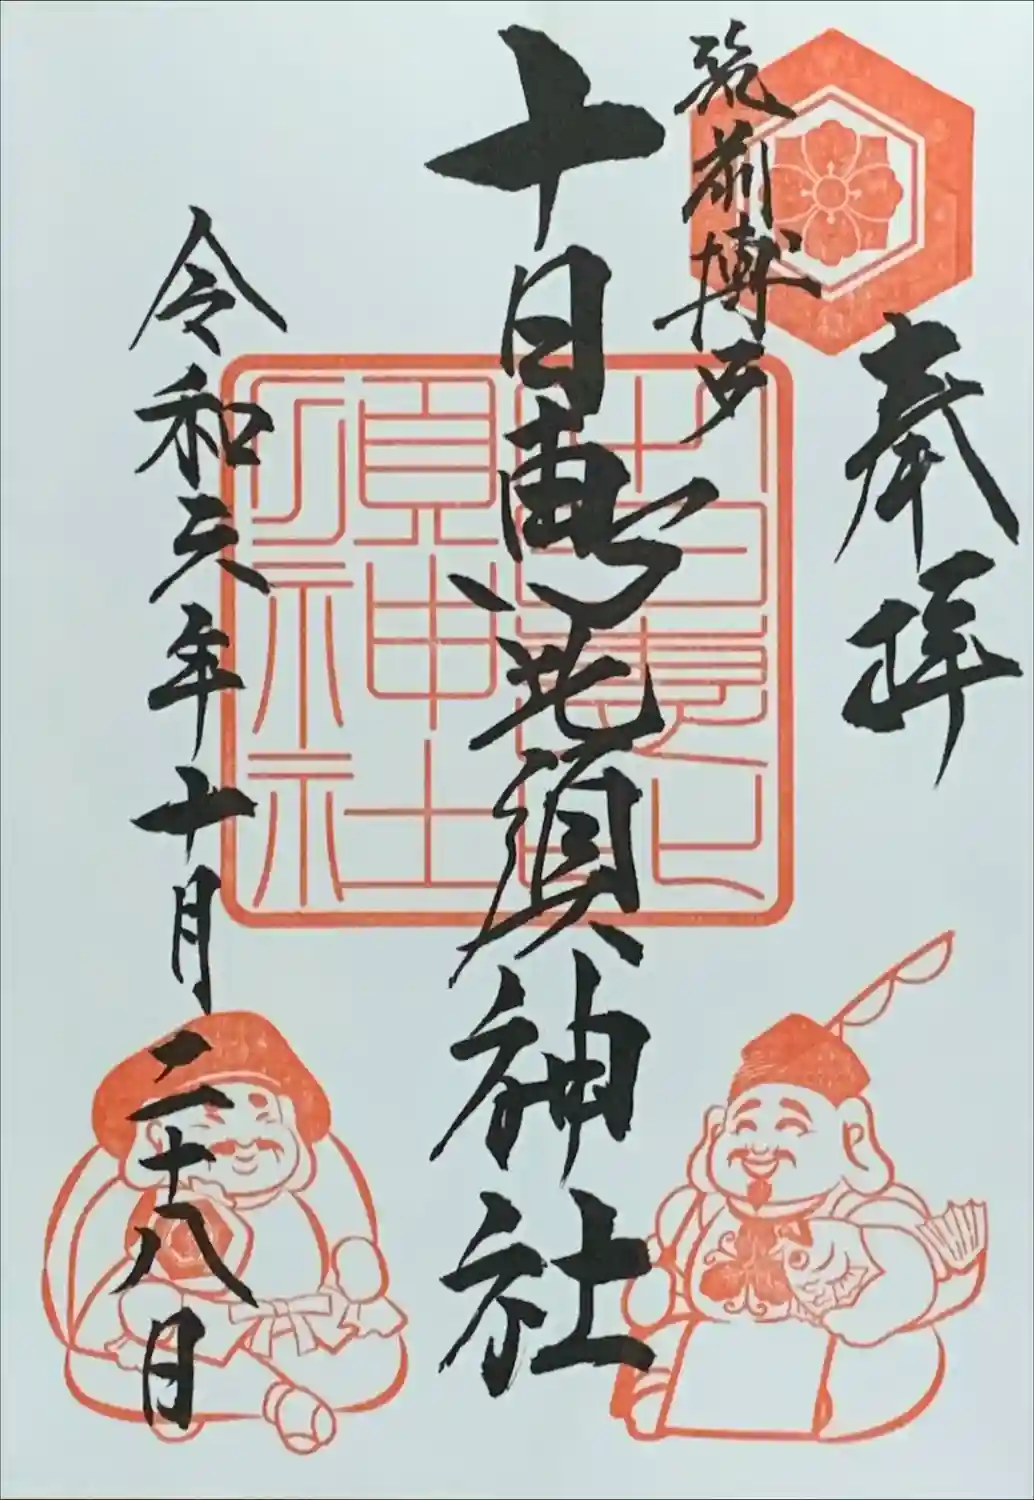 奉拝
筑前博多
十日恵比須神社
十日恵比須神社
令和六年十月二十八日